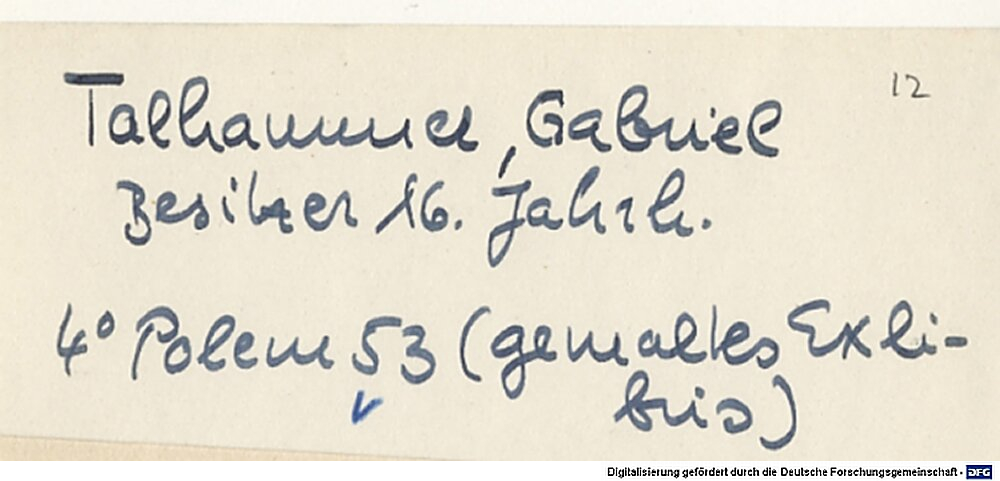 12
Talhammer, Gabriel
Besitzer 16. Jahrh.
4° Polem 53 (gemaltes Exli-
bris)
Digitalisierung gefördert durch die Deutsche Forschungsgemeinschaft - DFG